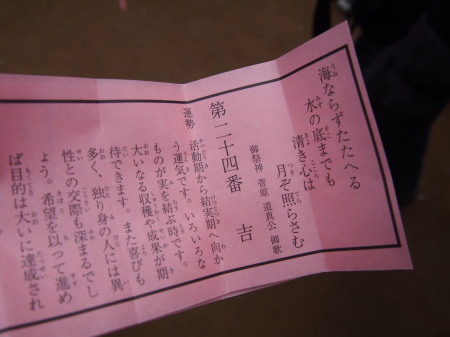 海ならずたたへる
水の底までも
清き心は
月ぞ照らさむ
御祭神 菅原 道真公 御歌
第二十四番 吉
運勢
活動期から結実期へ向か
う運気です。いろいろな
ものが実を結ぶ時です。
大いなる収穫や成果が期
待できます。また喜びも
多く、独り身の人には異
性との交際も深まるでし
ょう。希望を以って進め
ば目的は大いに達成され